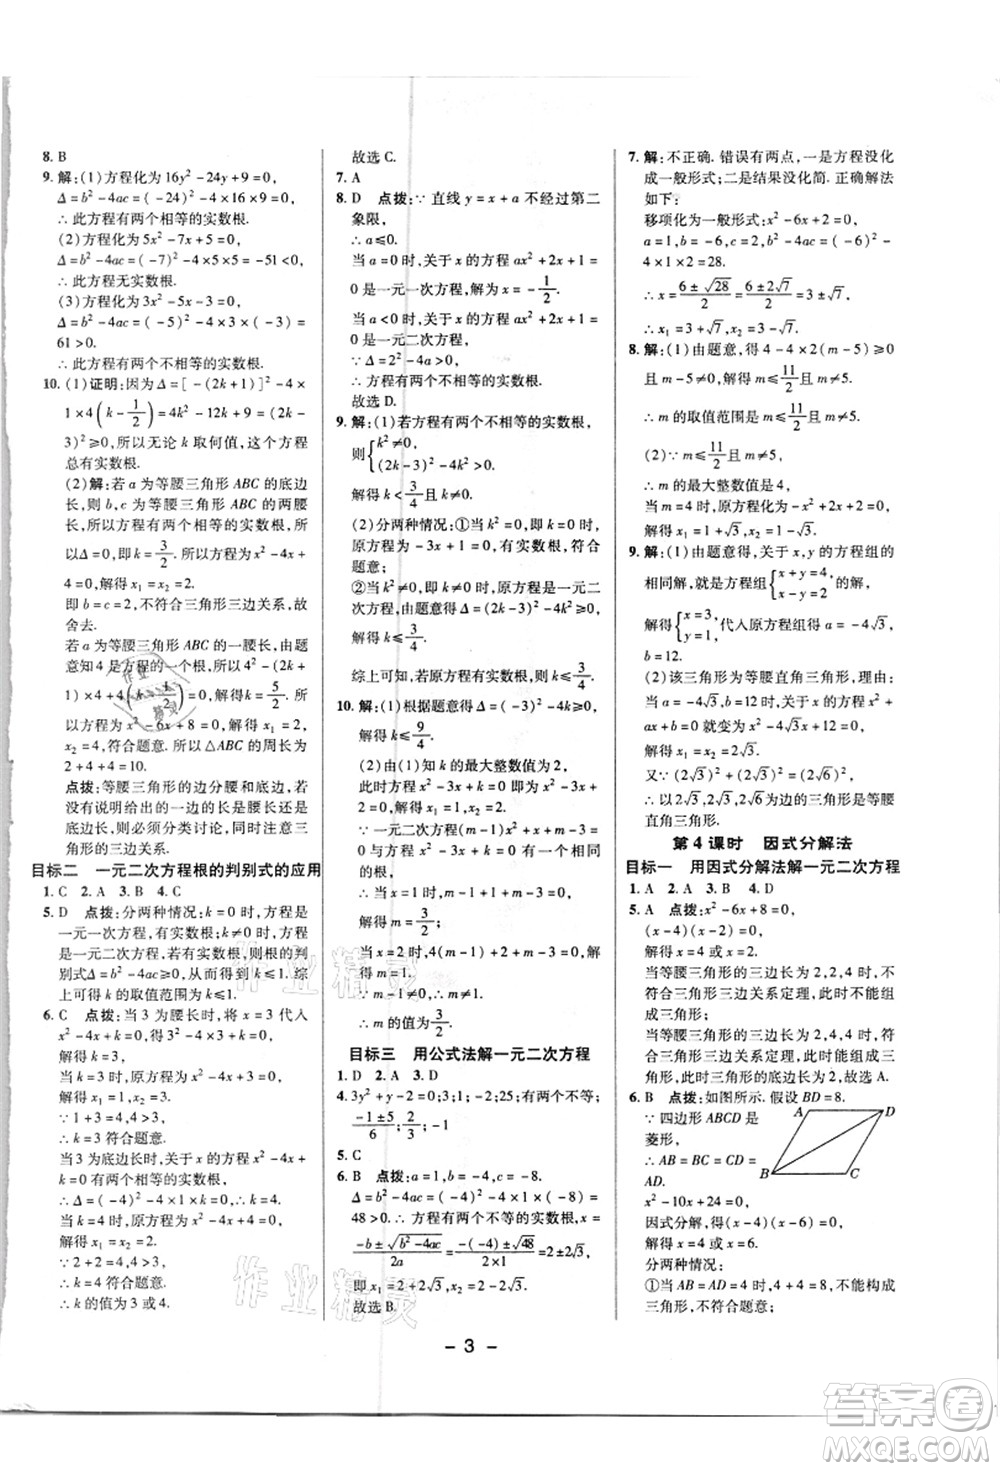 8. B
9. 解: (1) 方程化为 16y² - 24y + 9 = 0,
Δ = b² - 4ac = ( - 24)² - 4 × 16 × 9 = 0.
∴ 此方程有两个相等的实数根.
(2) 方程化为 5x² - 7x + 5 = 0,
Δ = b² - 4ac = ( - 7)² - 4 × 5 × 5 = - 51 < 0.
∴ 此方程无实数根.
(3) 方程化为 3x² - 5x - 3 = 0,
Δ = b² - 4ac = ( - 5)² - 4 × 3 × ( - 3) =
61 > 0.
∴ 此方程有两个不相等的实数根.
10. (1) 证明: 因为 Δ = [ - (2k + 1) ]² - 4 ×
1 × 4(k - 1/2) = 4k² - 12k + 9 = (2k -
3)² ≥ 0, 所以无论 k 取何值, 这个方程
总有实数根.
(2) 解: 若 a 为等腰三角形 ABC 的底边
长, 则 b, c 为等腰三角形 ABC 的两腰
长, 所以此方程有两个相等的实数根, 所
以 Δ = 0, 即 k = 3/2. 所以方程为 x² - 4x +
4 = 0, 解得 x₁ = x₂ = 2.
即 b = c = 2, 不符合三角形三边关系, 故
舍去.
若 a 为等腰三角形 ABC 的一腰长, 由题
意知 4 是方程的一个根, 所以 4² - (2k +
1) × 4 + 4(k - 1/2) = 0, 解得 k = 5/2. 所以
方程为 x² - 6x + 8 = 0, 解得 x₁ = 2,
x₂ = 4, 符合题意. 所以 △ABC 的周长为
2 + 4 + 4 = 10.
点拨: 等腰三角形的边分腰和底边, 若
没有说明给出的一边的长是腰长还是
底边长, 则必须分类讨论, 同时注意三
角形的三边关系.
目标二 一元二次方程根的判别式的应用
1. C 2. A 3. B 4. C
5. D 点拨: 分两种情况: k = 0 时, 方程是
一元一次方程, 有实数根; k ≠ 0 时, 方程是
一元二次方程, 若有实数根, 则根的判
别式 Δ = b² - 4ac ≥ 0, 解得 k ≤ 1. 综
上可得 k 的取值范围是 k ≤ 1.
6. C 点拨: 当 3 为腰长时, 将 x = 3 代入
x² - 4x + k = 0, 得 3² - 4 × 3 + k = 0,
解得 k = 3.
当 k = 3 时, 原方程为 x² - 4x + 3 = 0,
解得 x₁ = 1, x₂ = 3.
∵ 1 + 3 = 4, 4 > 3,
∴ k = 3 符合题意.
当 3 为底边长时, 关于 x 的方程 x² -
4x + k = 0 有两个相等的实数根,
∴ Δ = ( - 4)² - 4 × 1 × k = 0, 解得 k = 4.
当 k = 4 时, 原方程为 x² - 4x + 4 = 0,
解得 x₁ = x₂ = 2.
∵ 2 + 2 = 4, 4 > 3,
∴ k = 4 符合题意.
∴ k 的值为 3 或 4.
故选 C.
7. A
8. D 点拨: ∵ 直线 y = x + a 不经过第二
象限,
∴ a ≤ 0.
当 a = 0 时, 关于 x 的方程 ax² + 2x + 1 =
0 是一元一次方程, 解得 x = - 1/2.
当 a < 0 时, 关于 x 的方程 ax² + 2x + 1 =
0 是一元二次方程,
∵ Δ = 2² - 4a > 0,
∴ 方程有两个不相等的实数根.
故选 D.
9. 解: (1) 若方程有两个不相等的实数根,
则 { k² ≠ 0, (2k - 3)² - 4k² > 0,
解得 k < 3/4 且 k ≠ 0.
(2) 分两种情况: ① 当 k² = 0, 即 k = 0 时,
原方程为 - 3x + 1 = 0, 有实数根, 符合
题意;
② 当 k² ≠ 0, 即 k ≠ 0 时, 方程为一元二
次方程, 由题意可得 Δ = (2k - 3)² - 4k² ≥ 0,
解得 k ≤ 3/4 且 k ≠ 0.
综上可知, 若原方程有实数根, 则 k ≤ 3/4.
10. 解: (1) 根据题意得 Δ = ( - 3)² - 4k ≥ 0,
解得 k ≤ 9/4.
(2) 由 (1) 知 k 的最大整数值为 2,
此时方程 x² - 3x + k = 0 即为 x² - 3x + 2 =
0, 解得 x₁ = 1, x₂ = 2.
∵ 一元二次方程 (m - 1)x² + x + m - 3 =
0 与方程 x² - 3x + k = 0 有一个相同的根,
∴ 当 x = 1 时, m - 1 + 1 + m - 3 = 0,
解得 m = 3/2;
当 x = 2 时, 4(m - 1) + 2 + m - 3 = 0,
解得 m = 1.
∵ m - 1 ≠ 0,
∴ m 的值为 3/2.
目标三 用公式法解一元二次方程
1. D 2. A 3. D
4. 3y² + y - 2 = 0; 3; 1; - 2; 25; y =
(-1 ± 5)/6; 2/3; - 1
5. C
6. B 点拨: a = 1, b = - 4, c = - 8.
Δ = b² - 4ac = ( - 4)² - 4 × 1 × ( - 8) =
48 > 0. ∴ 方程有两个不等的实数根 x =
(-b ± √(b² - 4ac))/2a = (-(-4) ± √48)/(2 × 1) = 2 ± 2√3,
即 x₁ = 2 + 2√3, x₂ = 2 - 2√3.
故选 B.
7. 解: 不正确. 错误有两点, 一是方程没化
成一般形式; 二是结果没化简. 正确解法
如下:
移项化为一般形式: x² - 6x + 2 = 0,
a = 1, b = - 6, c = 2, Δ = b² - 4ac = ( - 6)² -
4 × 1 × 2 = 28.
∴ x = (6 ± √28)/2 = (6 ± 2√7)/2 = 3 ± √7,
∴ x₁ = 3 + √7, x₂ = 3 - √7.
8. 解: (1) 由题意, 可得 4 - 4 × 2(m - 5) ≥ 0
且 m - 5 ≠ 0, 解得 m ≤ 11/2 且 m ≠ 5.
∴ m 的取值范围是 m ≤ 11/2 且 m ≠ 5.
(2) ∵ m ≤ 11/2 且 m ≠ 5,
∴ m 的最大整数值是 4,
当 m = 4 时, 原方程化为 - x² + 2x + 2 = 0,
解得 x₁ = 1 + √3, x₂ = 1 - √3.
9. 解: (1) 由题意得, 关于 x, y 的方程组的
相同解, 就是方程组 { x + y = 4, x - y = 2 的解,
解得 { x = 3, y = 1, 代入原方程组得 a = - 4√3,
b = 12.
(2) 该三角形是等腰直角三角形, 理由:
当 a = - 4√3, b = 12 时, 关于 x 的方程 x² +
ax + b = 0 就变为 x² - 4√3x + 12 = 0,
解得 x₁ = x₂ = 2√3.
又∵ (2√3)² + (2√3)² = (2√6)²,
∴ 以 2√3, 2√3, 2√6 为边的三角形是等腰
直角三角形.
第 4 课时 因式分解法
目标一 用因式分解法解一元二次方程
1. A 2. A 3. B 4. D
5. A 点拨: x² - 6x + 8 = 0,
(x - 4)(x - 2) = 0,
解得 x = 4 或 x = 2,
当等腰三角形的三边长为 2, 2, 4 时, 不
符合三角形三边关系定理, 此时不能组
成三角形;
当等腰三角形的三边长为 2, 4, 4 时, 符
合三角形三边关系定理, 此时能组成三
角形, 所以周长为 2 + 4 + 4 = 10. 故选 A.
6. B 点拨: 如图所示. 假设 BD = 8.
∵ 四边形 ABCD 是
菱形,
∴ AB = BC = CD =
AD.
x² - 10x + 24 = 0,
因式分解, 得 (x - 4)(x - 6) = 0.
解得 x = 4 或 x = 6.
分两种情况:
① 当 AB = AD = 4 时, 4 + 4 = 8, 不能构成
三角形, 不符合题意;
A
D
B
C
- 3 -
作业精灵
作业精灵
答案圈
MXQE.COM